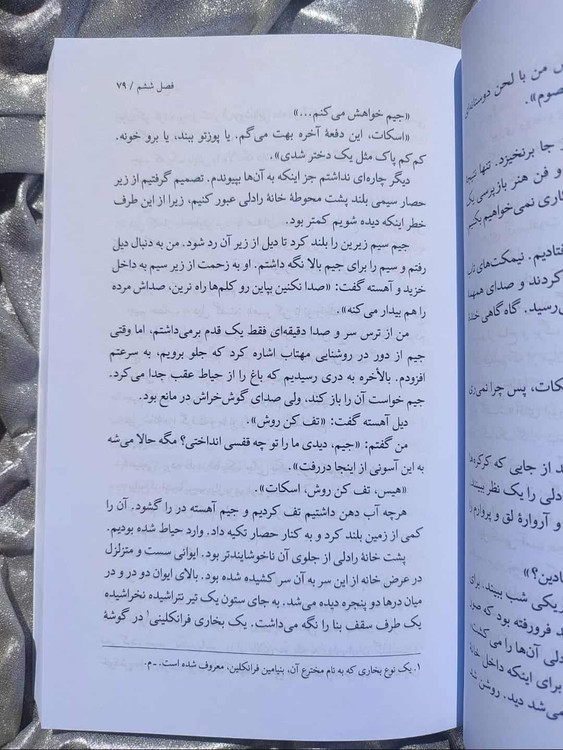 فصل ششم / ۷۹
«جیم خواهش می‌کنم...»
«اسکات، این دفعهٔ آخره بهت می‌گم. یا پوزتو ببند، یا برو خونه.
کم‌کم پاک مثل یک دختر شدی».
دیگر چاره‌ای نداشتم جز اینکه به آن‌ها بپیوندم. تصمیم گرفتیم از زیر
حصار سیمی بلند پشت محوطهٔ خانهٔ رادلی عبور کنیم، زیرا از این طرف
خطر اینکه دیده شویم کمتر بود.
جیم سیم زیرین را بلند کرد تا دیل از زیر آن رد شود. من به دنبال دیل
رفتم و سیم را برای جیم بالا نگه داشتم. او به زحمت از زیر سیم به داخل
خزید و آهسته گفت: «صدا نکنین بپاین رو کلم‌ها راه نرین، صداش مرده
را هم بیدار می‌کنه».
من از ترس سر و صدا دقیقه‌ای فقط یک قدم برمی‌داشتم. اما وقتی
جیم از دور در روشنایی مهتاب اشاره کرد که جلو برویم، به سرعتم
افزودم. بالأخره به دری رسیدیم که باغ را از حیاط عقب جدا می‌کرد.
جیم خواست آن را باز کند. ولی صدای گوش‌خراش در مانع بود.
دیل آهسته گفت: «تف کن روش».
من گفتم: «جیم، دیدی ما را تو چه قفسی انداختی؟ مگه حالا می‌شه
به این آسونی از اینجا دررفت».
«هیس، تف کن روش، اسکات».
هرچه آب دهن داشتیم تف کردیم و جیم آهسته در را گشود. آن را
کمی از زمین بلند کرد و به کنار حصار تکیه داد. وارد حیاط شده بودیم.
پشت خانهٔ رادلی از جلوی آن ناخوشایندتر بود. ایوانی سست و متزلزل
در عرض خانه از این سر به آن سر کشیده شده بود. بالای ایوان دو در و در
میان درها دو پنجره دیده می‌شد. به جای ستون یک تیر نتراشیده نخراشیده
یک طرف سقف بنا را نگه می‌داشت. یک بخاری فرانکلینی۱ در گوشهٔ
۱. یک نوع بخاری که به نام مخترع آن، بنیامین فرانکلین، معروف شده است. ـ م.
من با لحن دوستانه‌ای
جا برنخیزد. تنها
و فن هنر بازپرسی یک
کاری نمی‌خواهیم بکنیم
نیمکت‌های
کردند و صدای همهمهٔ
گاه‌گاهی
پس چرا نمی‌ری
از جایی که کرکره‌ها
رادلی را یک نظر ببیند
و آرواره لق و پروارم را
یکی شب ببیند. برای
فرورفته بود که صورت
آن‌ها را می‌کشت
برای اینکه داخل خانهٔ
می‌شد دید. روشن شد